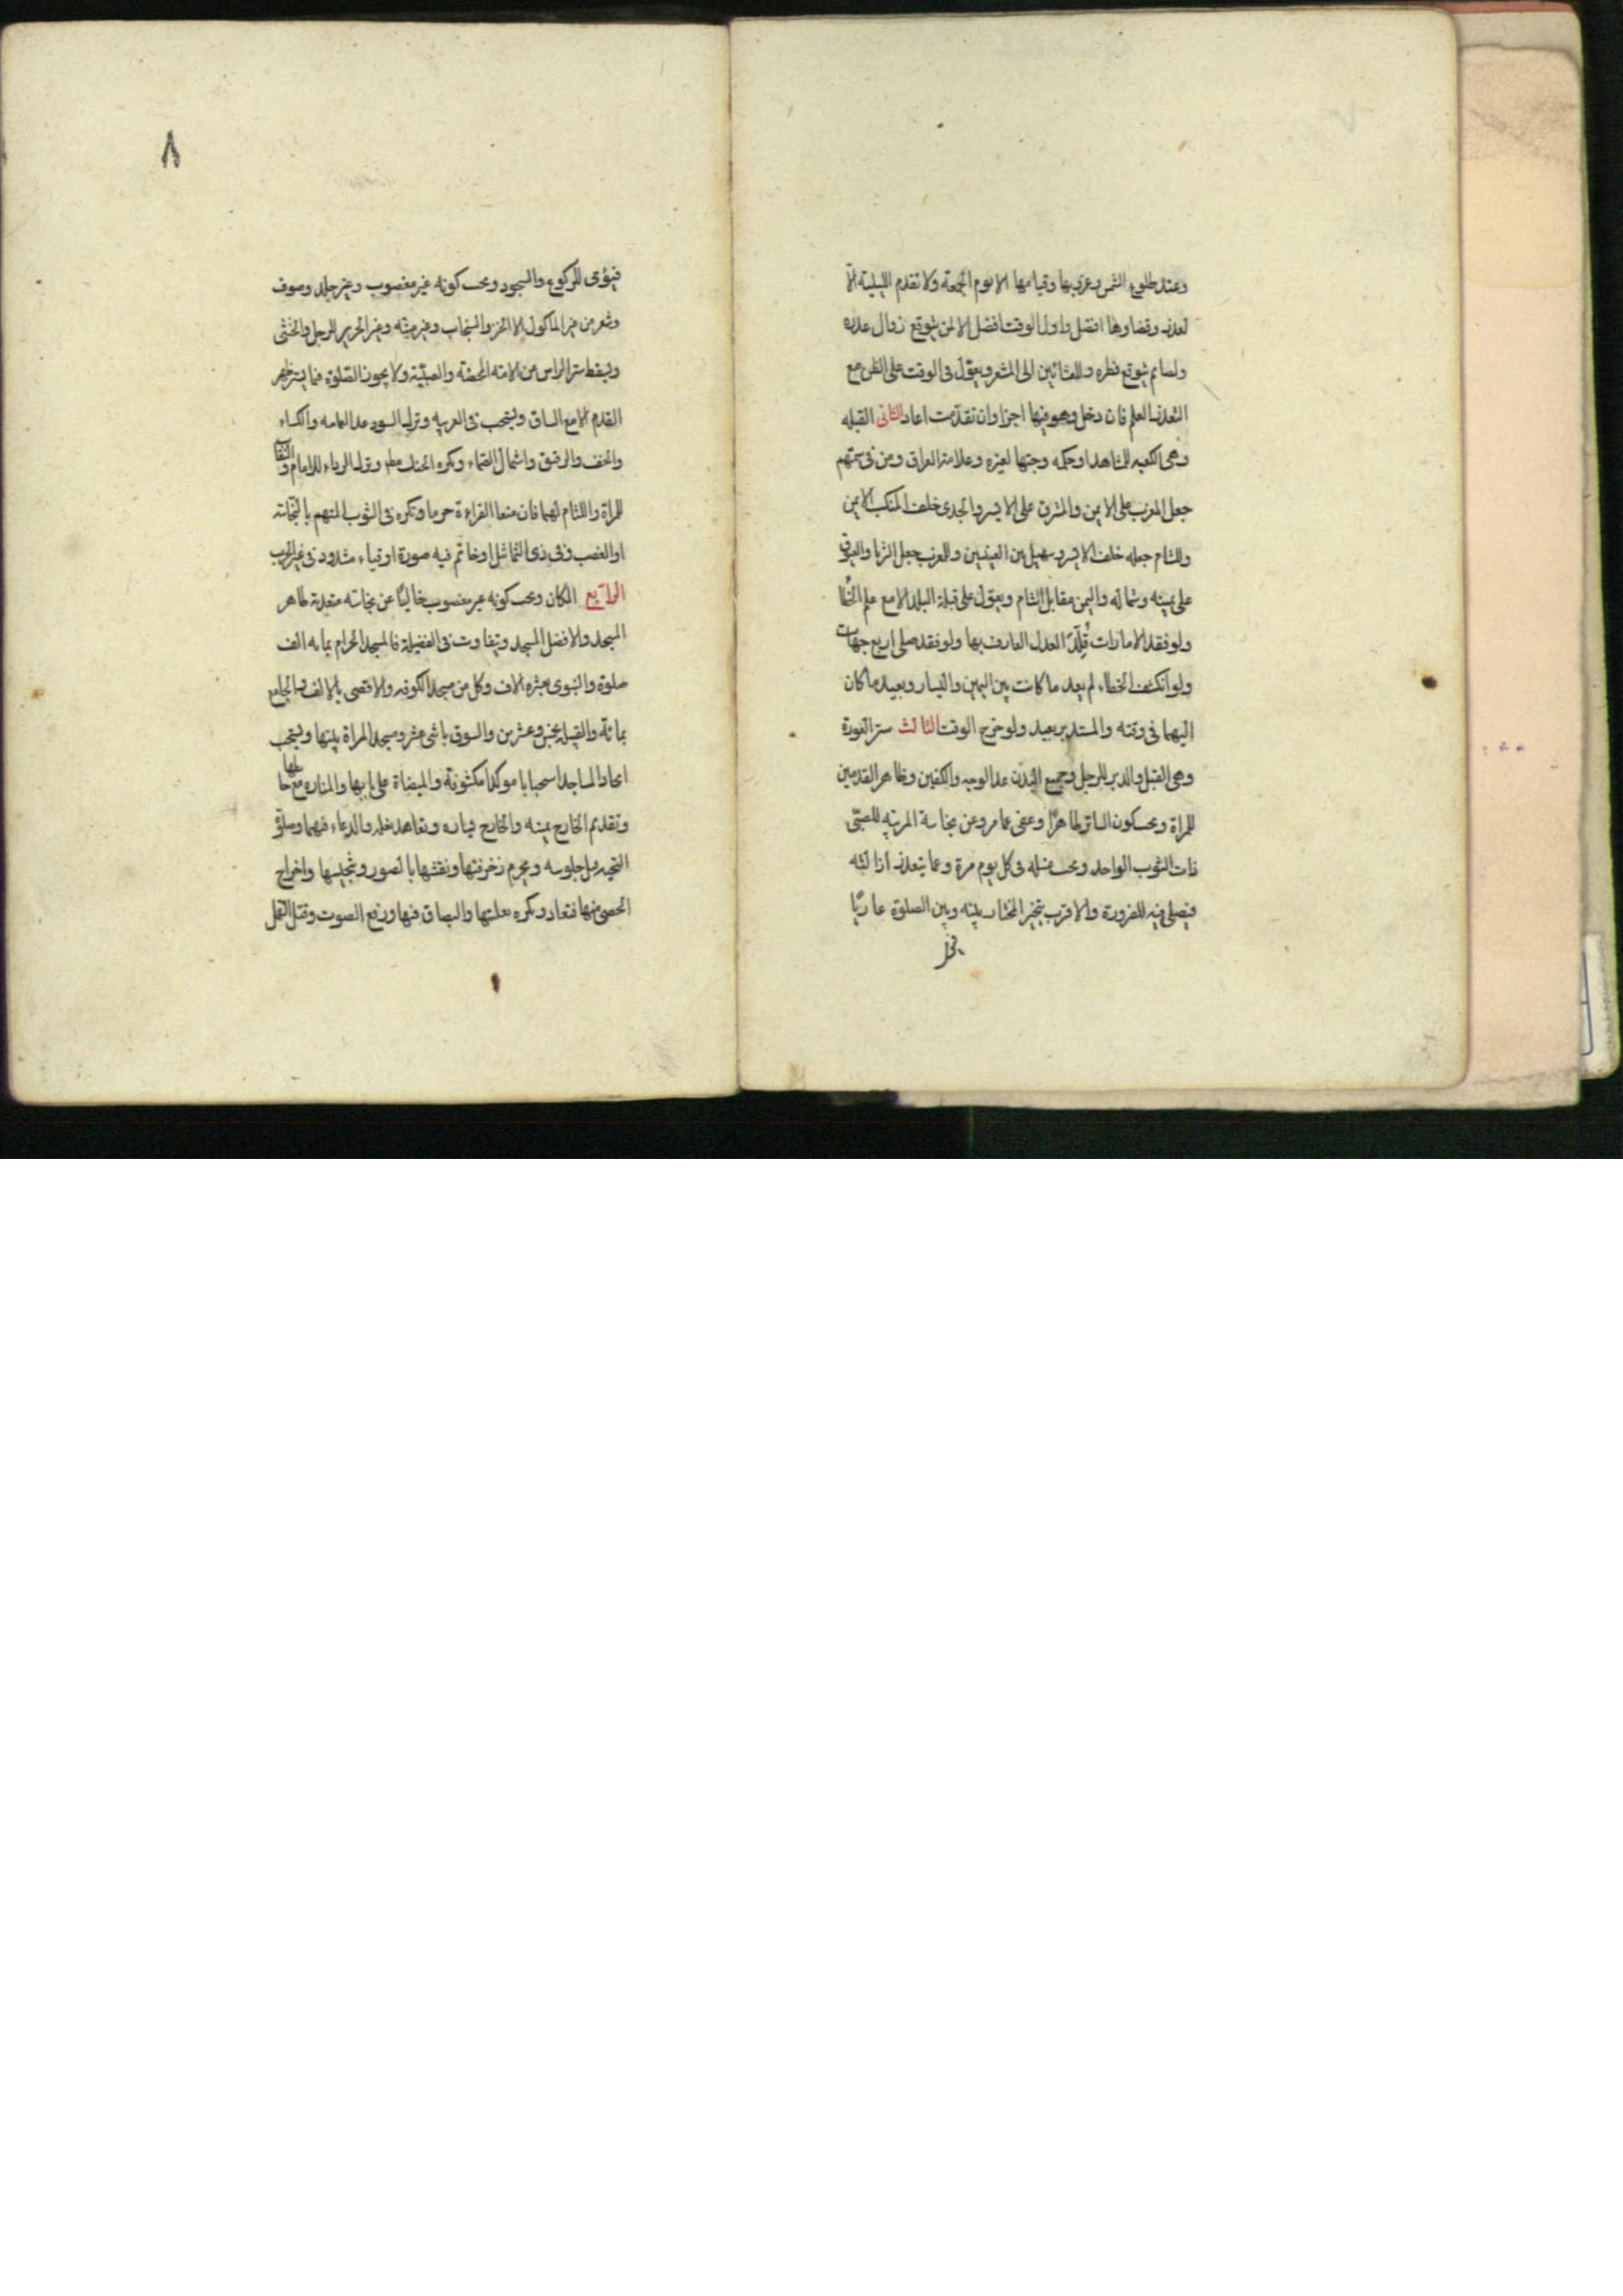 وعند طلوع الشمس وغروبها وقيامها الا يوم الجمعة ولا تقدم الليلية الا
لعذر وقضاوها افضل واول الوقت افضل الا لمن يتوقع زوال عذره
ولصايم يتوقع فطره وللعشائين الى المشعر ويعول فى الوقت على الظن مع
التعذر العلم فان دخل وهو فيها اجزا وان تقدمت اعاد الثانى القبله
وهى الكعبه للمشاهد او حكمه وجهتها لغيره وعلامة العراق ومن فى سمتهم
جعل المغرب على الايمن والمشرق على الايسر والجدى خلف المنكب الايمن
وللشام جعله خلف الايسر وسهيل بين العينين وللمغرب جعل الثريا والعيوق
على يمينه وشماله واليمن مقابل الشام ويعول على قبلة البلد الا مع علم الخطا
ولو فقد الامارات قلد العدل العارف بها ولو فقد صلى اربع جهات
ولو انكشف الخطاء لم يعد ما كانت بين اليمين واليسار ويعيد ما كان
اليهما فى وقته والمستدبر يعيد ولو خرج الوقت الثالث ستر العورة
وهى القبل والدبر للرجل وجميع البدن عدا الوجه والكفين وظاهر القدمين
للمراة ويجب كون الساتر طاهرا وعفى عما مر وعن نجاسة المربيه للصبى
ذات الثوب الواحد ويجب غسله فى كل يوم مرة وعما يتعذر ازالته
فيصلى فيه للضرورة والاقرب تخير المختار بينه وبين الصلوة عاريا
٨
فيؤمى للركوع والسجود ويجب كونه غير مغصوب وغير جلد وصوف
وشعر من غير الماكول الا الخز والسنجاب وغير ميته وغير الحرير للرجل والخنثى
ويسقط ستر الراس عن الامة المحضة والصبية ولا يجوز الصلوة فيما يستر ظهر
القدم الا مع الساق ويستحب فى العربيه وترك السود عدا العمامه والكساء
والخف والرقيق واشتمال الصماء ويكره الحنك مطم وترك الرداء للامام والنقاب
للمراة واللثام لهما فان منعا القراءة حرما ويكره فى الثوب المتهم بالنجاسة
او الغصب وفى ذى التماثيل او خاتم فيه صورة او قباء مشدود فى غير الحرب
الرابع المكان ويجب كونه غير مغصوب خاليا عن نجاسة متعدية طاهر
المسجد والافضل المسجد ويتفاوت فى الفضيلة فالمسجد الحرام بمايه الف
صلوة والنبوى بعشره الاف وكل من مسجد الكوفه والاقصى بالالف والجامع
بمائة والقبيله بخمس وعشرين والسوق باثنى عشر ومسجد المراة بيتها ويستحب
اتخاذ المساجد استحبابا موكدا مكشوفة والميضاة على بابها والمناره مع حايطها
وتقديم الداخل يمينه والخارج يساره وتعاهد نعله والدعاء فيهما وصلوة
التحيه قبل جلوسه ويحرم زخرفتها ونقشها بالصور وتنجيسها واخراج
الحصى منها فتعاد ويكره تعليتها والبصاق فيها ورفع الصوت وقتل القمل